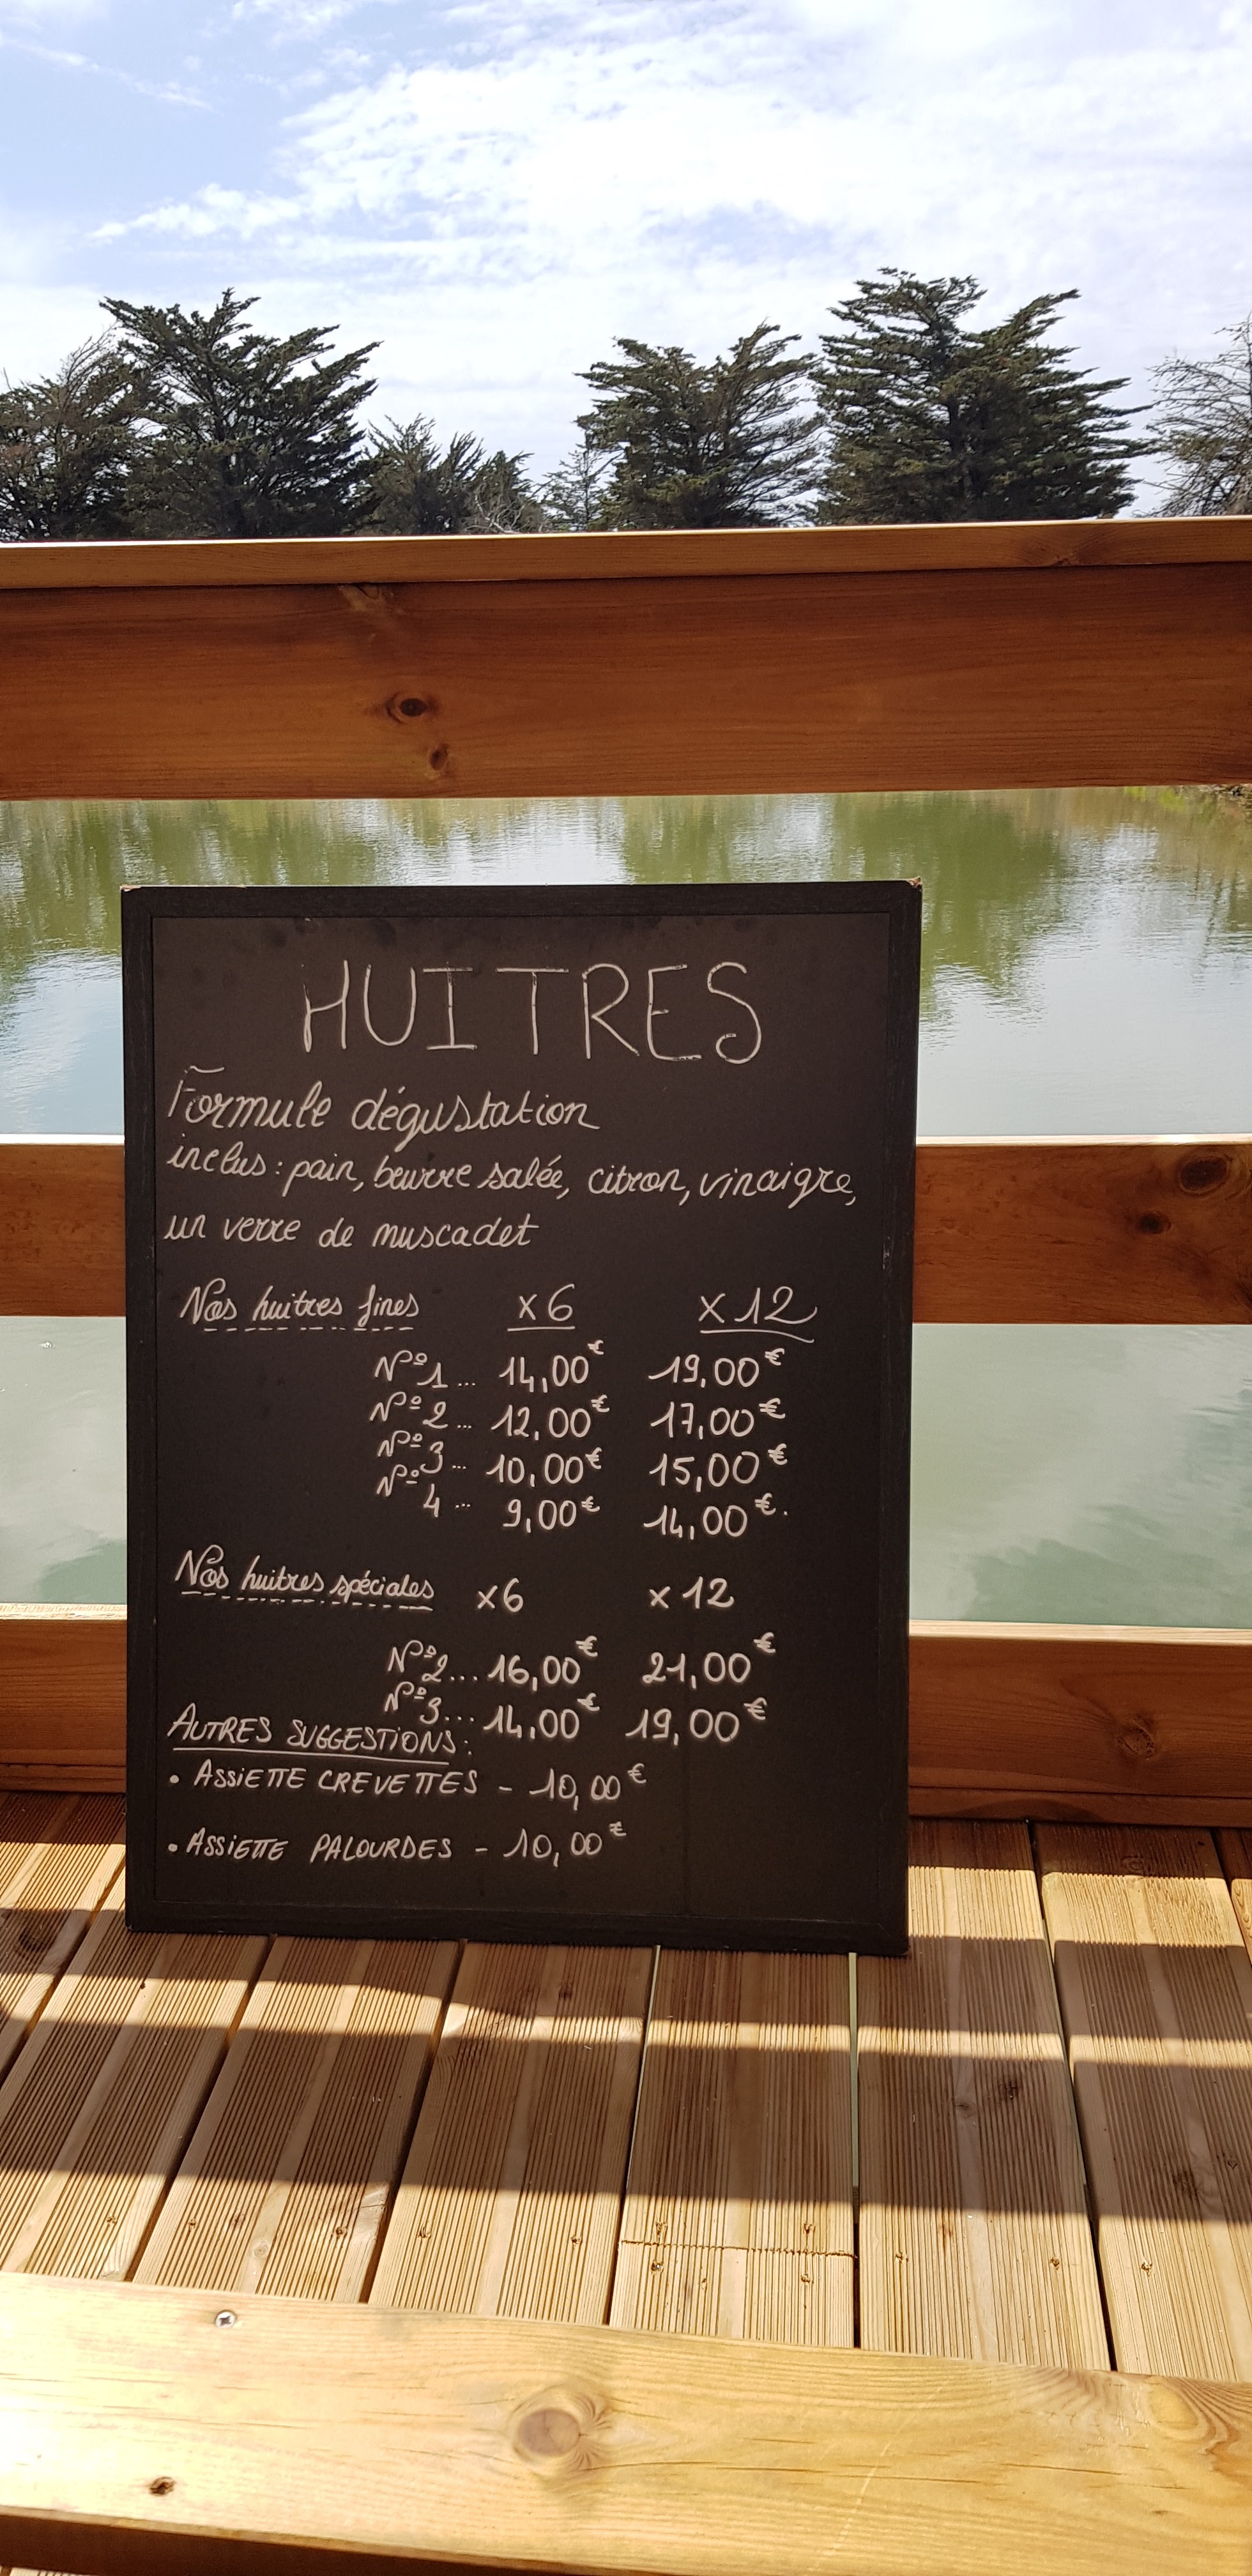 HUITRES
Formule dégustation
inclus : pain, beurre salée, citron, vinaigre,
un verre de muscadet
Nos huitres fines x6 x12
N°1 ... 14,00€ 19,00€
N°2 ... 12,00€ 17,00€
N°3 ... 10,00€ 15,00€
N°4 ... 9,00€ 14,00€.
Nos huitres spéciales x6 x12
N°2... 16,00€ 21,00€
N°3... 14,00€ 19,00€
AUTRES SUGGESTIONS :
• ASSIETTE CREVETTES - 10,00€
• ASSIETTE PALOURDES - 10,00€